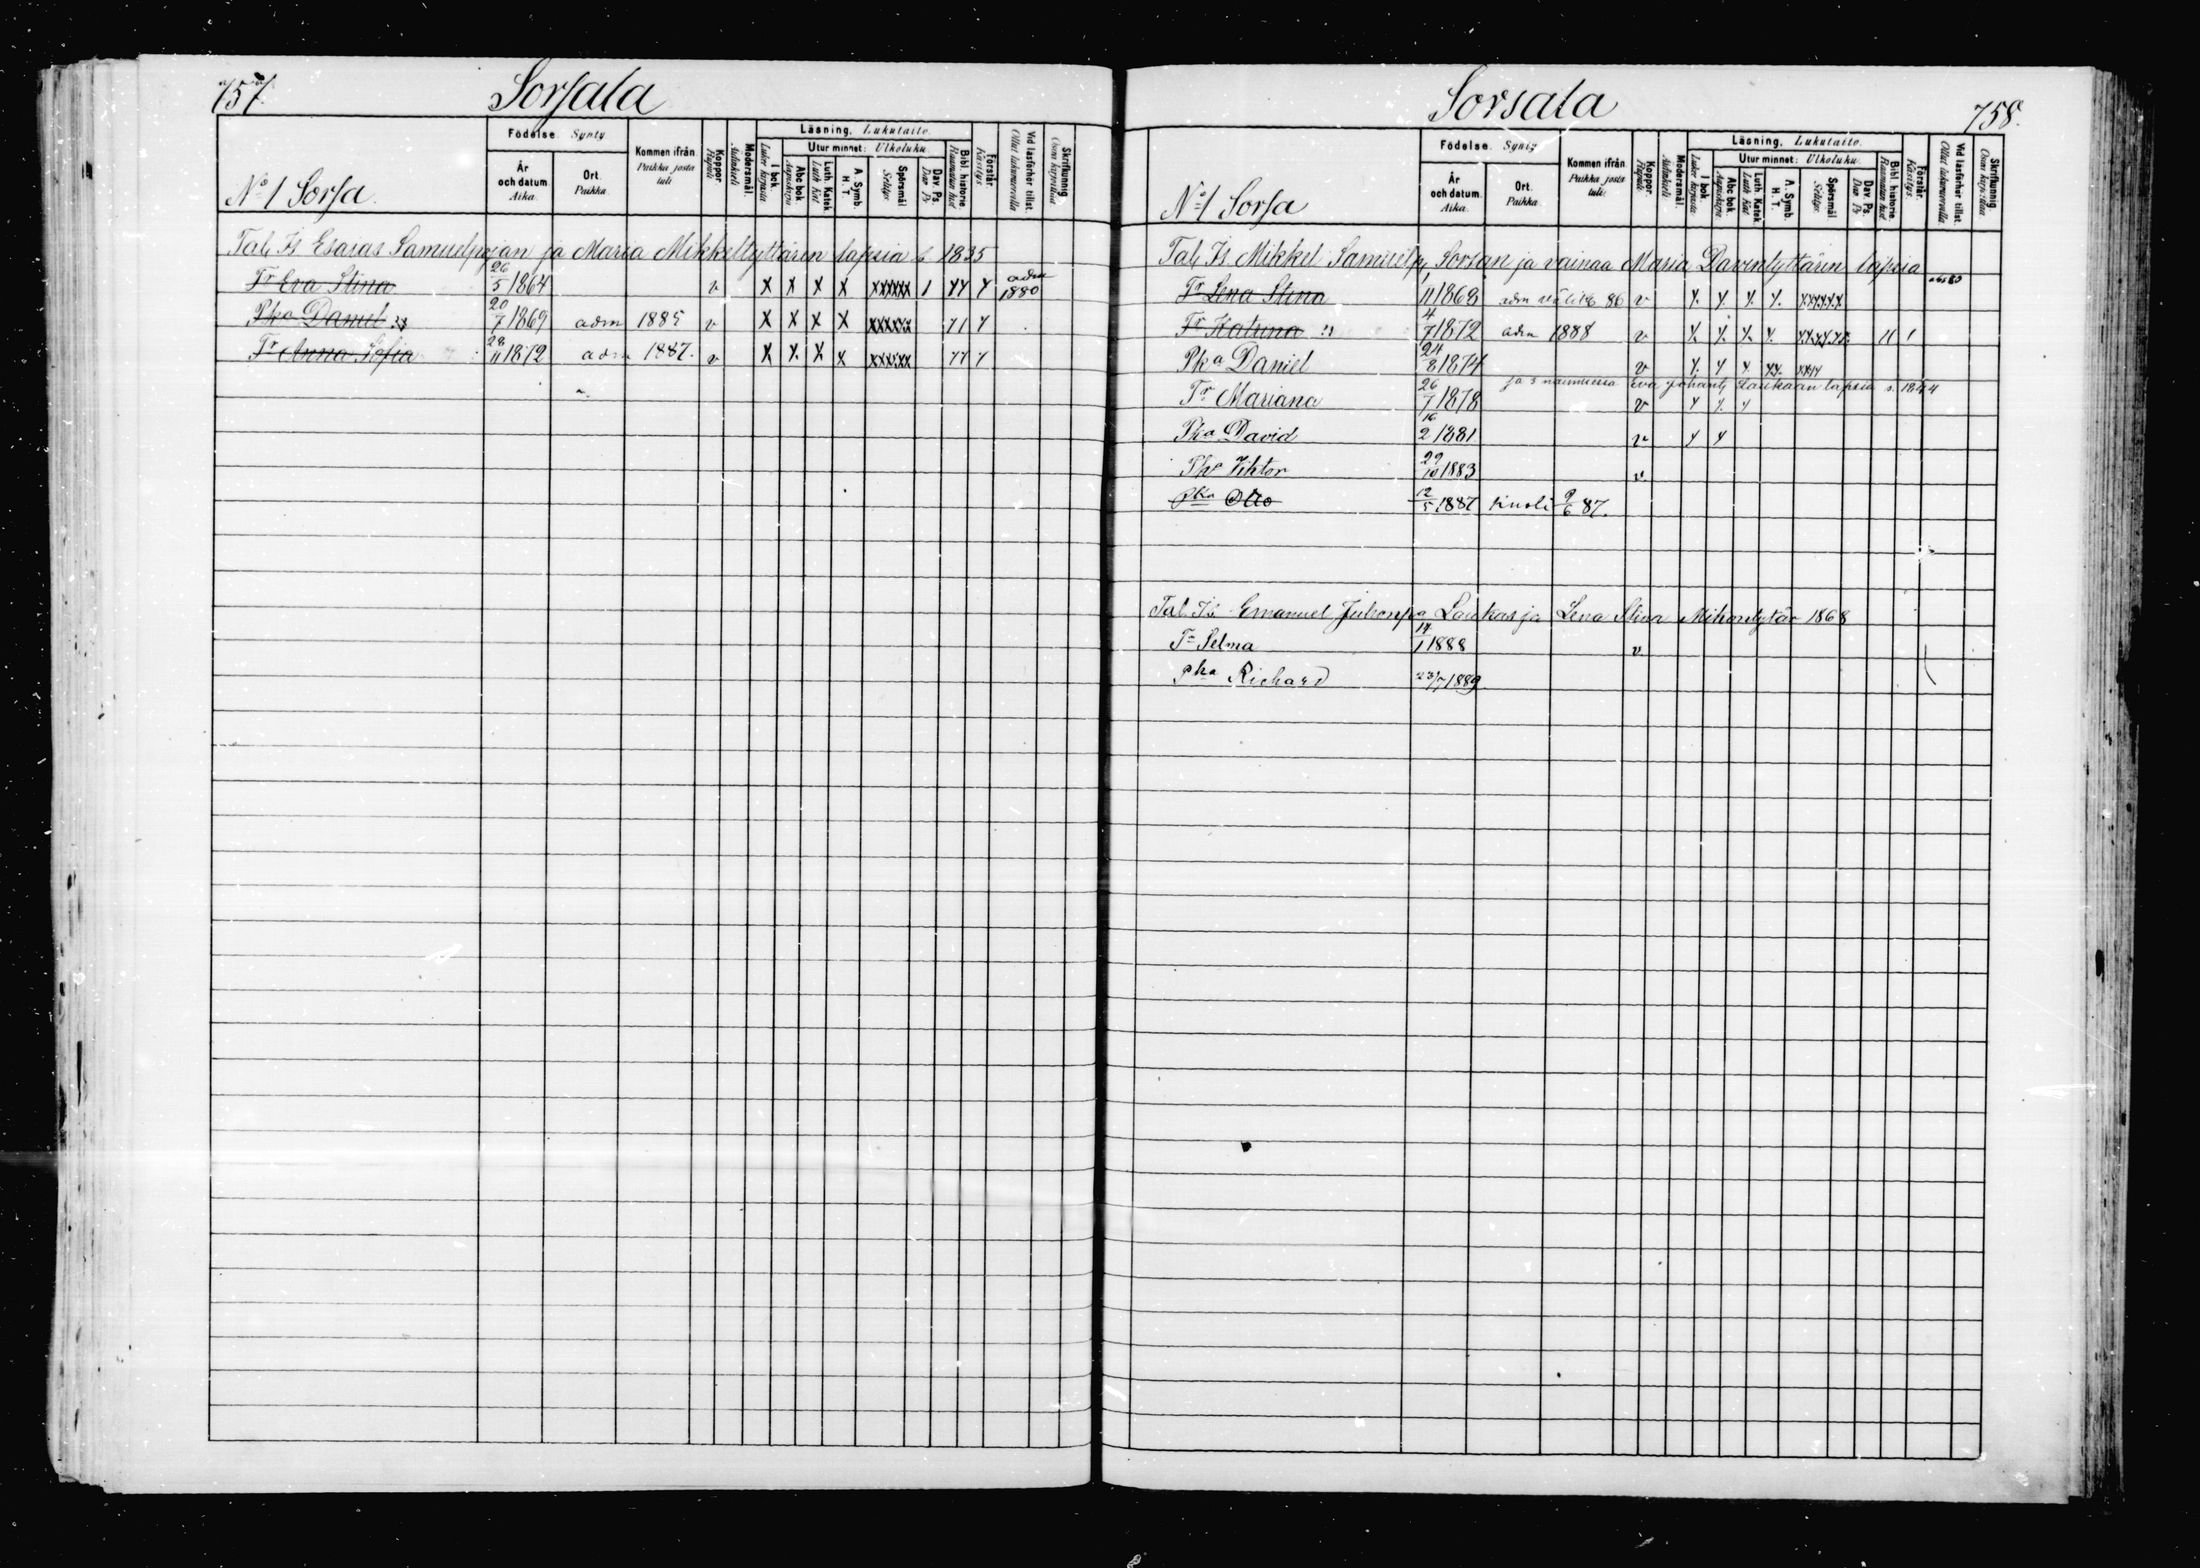 757.
Sorsala
Födelse. Synty
Kommen ifrån
Paikka josta tuli
Koppor. Rupuli
Modersmål. Äidinkieli
Läsning. Lukutaito.
I bok. Lukee kirjasta
Utur minnet: Ulkoluku.
Abc bok Aapiskirja
Luth. Katek. Luth. Kat
A. Symb. H. T.
Spörsmål Selitys.
Dav. Ps. Daw. Ps
Bibl. historie. Raamatun hist.
Förstår. Käsitys.
Vid läsförhör tillst. Ollut lukuinuvilla
Skrifkunnig. Osaa kirjoittaa
År och datum Aika.
Ort. Paikka.
No 1 Sorsa.
Tal. Is Esaias Samuelpojan ja Maria Mikkeltyttären lapsia s. 1835
Tr Eva Stina 26/5 1864 v X X X X XXXXXX 1 YY Y adm 1880
Pka Daniel 20/7 1869 adm 1885 v X X X X XXXXXX Y1 Y
Tr Anna Sofia 28/11 1872 adm 1887. v X X X X XXXXXX YY Y
Sorsala
758.
Födelse. Synty
Kommen ifrån
Paikka josta tuli.
Koppor. Rupuli.
Modersmål. Äidinkieli
Läsning. Lukutaito.
I bok. Lukee kirjasta.
Utur minnet: Ulkoluku.
Abc bok Aapiskirja
Luth. Katek. Luth. Kat
A. Symb. H. T.
Spörsmål Selitys.
Dav. Ps. Daw. Ps
Bibl. historie Raamatun hist.
Förstår. Käsitys.
Vid läsförhör tillst. Ollut lukuinuvilla
Skrifkunnig Osaa kirjoittaa
År och datum. Aika.
Ort. Paikka.
No 1 Sorsa
Tal. Is Mikkel Samuelp. Sorsan ja vainaa Maria Davintyttären lapsia
Tr Lena Stina 1/11 1868 adm 86 v Y. Y. Y. Y. XXXXXX
Tr Katrina 4/7 1872 adm 1888 v Y. Y. Y. Y. 11 1
Pka Daniel 24/8 1874 v Y. Y Y YY. XXYY
ja Eva Laukaan lapsia s. 1844
Tr Mariana 26/7 1878 v Y Y. Y
Pka David 16/2 1881 v Y Y
Pka Viktor 29/10 1883 v
Pka Otto 12/5 1887 kuoli 9/6 87.
Tal. Is Emanuel Juhonpa Laukas ja Lena Stina Mikontytär 1868
Tr Selma 14/1 1888 v
Pka Richard 23/7 1889